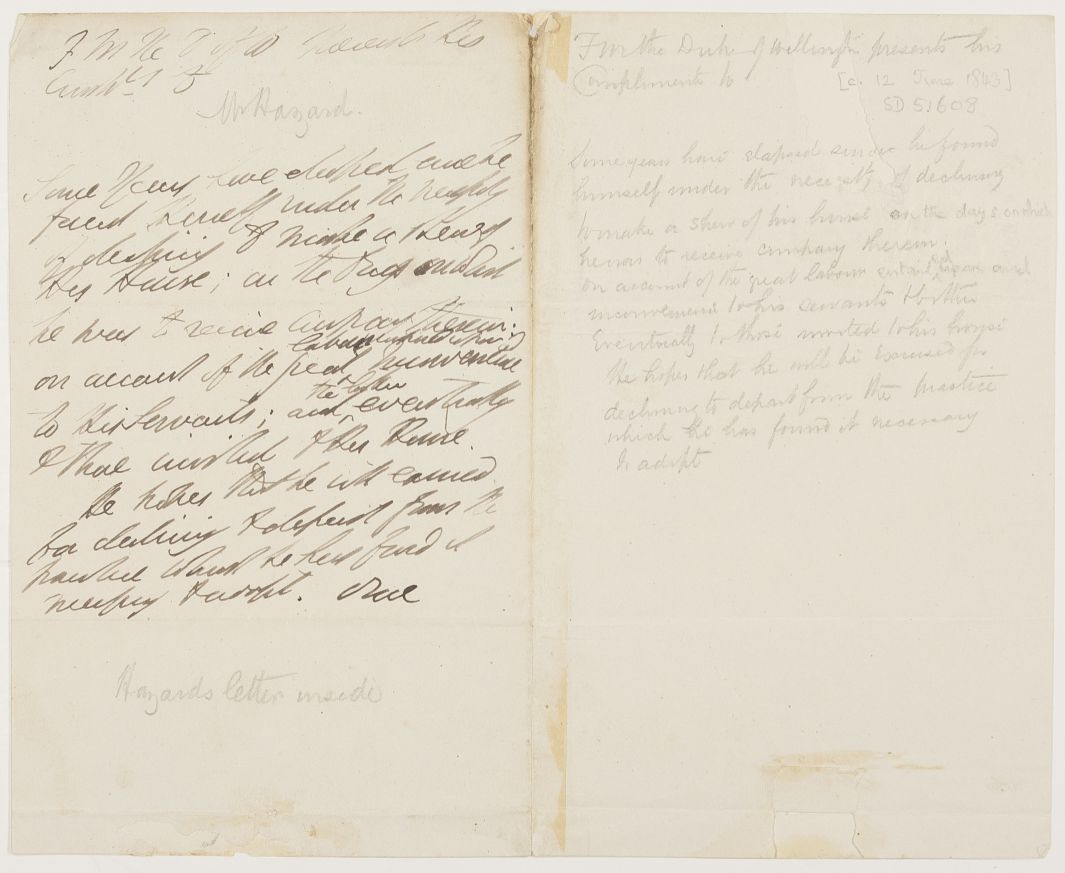 F M The D of W presents His
Compts to
Mr Hazard.
Some Years have elapsed since he
found Himself under the necessity
of declining to make a Shew of
His House; on the Days on which
he was to receive Company therein:
labour entailed upon and
on account of the great inconvenience
the bother
to His Servants; and eventually
to those invited to His House.
He hopes that he will be excused
for declining to depart from the
practice which he has found it
necessary to adopt.
Hazards letter inside
F M the Duke of Wellington presents his
Compliments to
[c. 12 June 1843]
SD 51608
Some years have elapsed since he found
himself under the necessity of declining
to make a shew of his house on the days on which
he was to receive company therein.
on account of the great labour entailed upon and
inconvenience to his servants & bother
Eventually to those invited to his house
He hopes that he will be Excused for
declining to depart from the practice
which he has found it necessary
to adopt